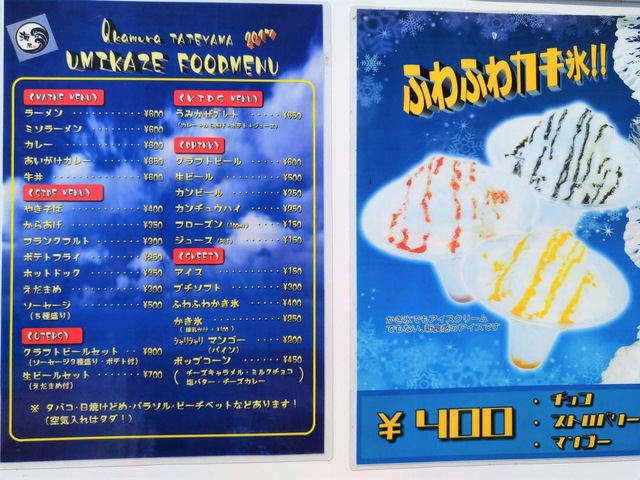 海風
Okamura TATEYAMA 2017
UMIKAZE FOODMENU
(MAINE MENU)
ラーメン ¥600
ミソラーメン ¥600
カレー ¥600
あいがけカレー ¥650
牛丼 ¥600
(SIDE MENU)
やきそば ¥400
からあげ ¥350
フランクフルト ¥300
ポテトフライ ¥350
ホットドック ¥350
えだまめ ¥300
ソーセージ ¥500
(5種盛り)
(OTERS)
クラフトビールセット ¥900
(ソーセージ2種盛り・ポテト付)
生ビールセット ¥700
(えだまめ付)
(K.I.D.S MENU)
うみかぜプレート ¥650
(カレー+から揚げ+ポテト+ジュース)
(DRINK)
クラフトビール ¥600
生ビール ¥500
カンビール ¥250
カンチュウハイ ¥250
フローズン ¥150
ジュース(PET) ¥150
(SWEET)
アイス ¥150
プチソフト ¥300
ふわふわかき氷 ¥400
かき氷 ¥250
(練乳がけ・¥100)
シャリシャリマンゴー ¥200
(パイン)
ポップコーン ¥450
(チーズキャラメル・ミルクチョコ
塩バター・チーズカレー)
※ タバコ・日焼けどめ・パラソル・ビーチベットなどあります!
(空気入れはタダ!)
ふわふわカキ氷!!
かき氷でもアイスクリーム
でもない、新食感のアイスです
¥400
・チョコ
・ストロベリー
・マンゴー